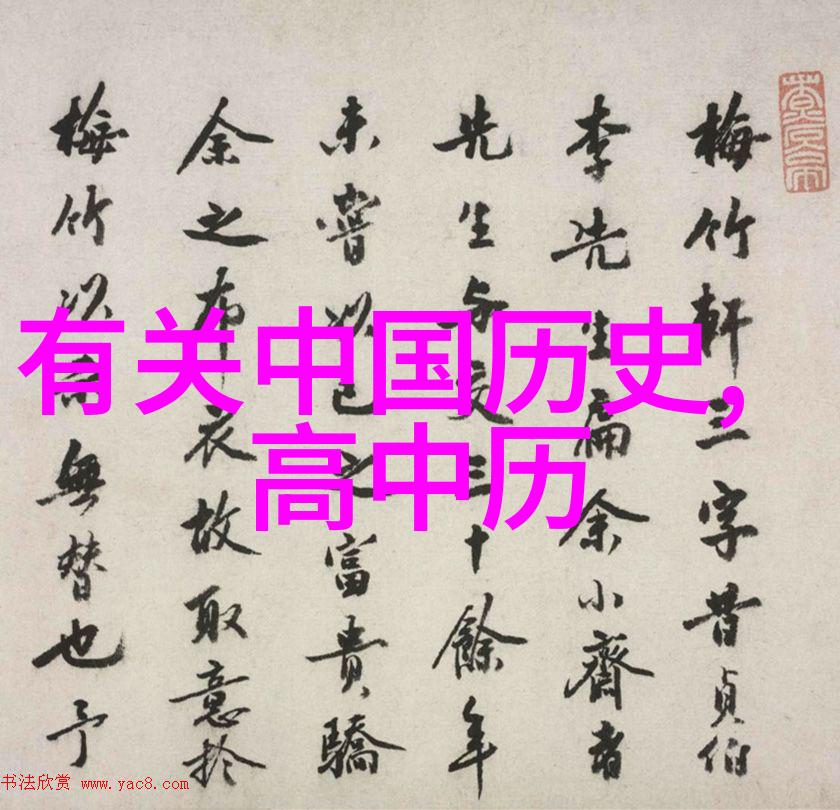 梅竹軒三字昔貞伯
李先生扁余小齋者
先生与交三十餘年
未嘗以己之富貴驕
余之布衣故取意於
梅竹以無替也予
有关中国历史,
高中历
书法欣赏 www.yac8.com